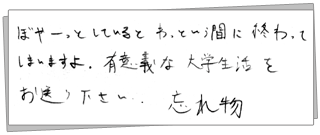 ぼやーっとしているとあっという間に終わって
しまいますよ。有意義な大学生活を
お送り下さい… 忘れ物